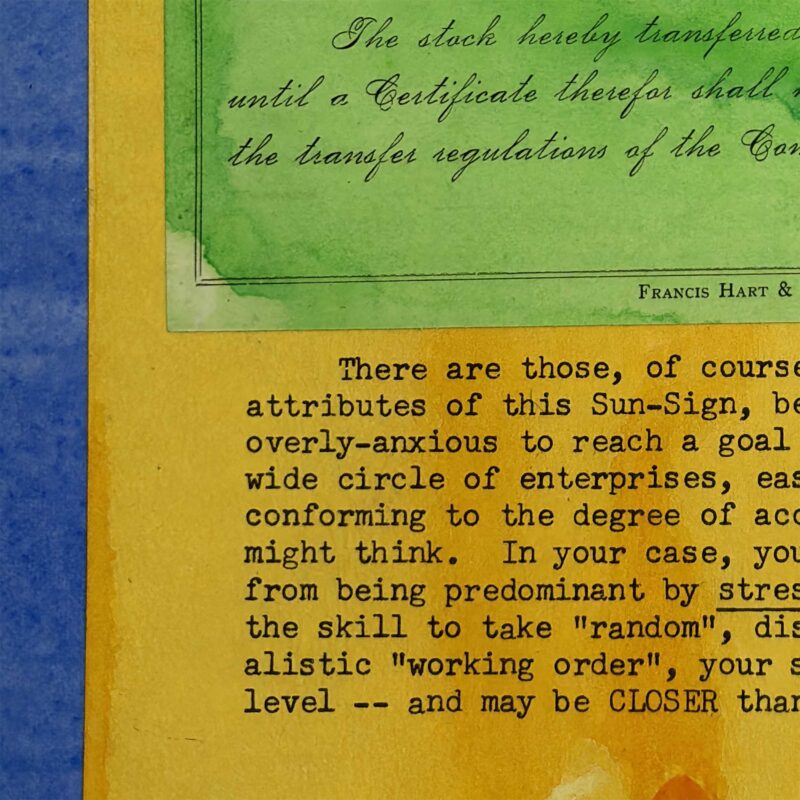 The stock hereby transferred
until a Certificate therefor shall
the transfer regulations of the
FRANCIS HART &
There are those, of course
attributes of this Sun-Sign,
overly-anxious to reach a goal
wide circle of enterprises,
conforming to the degree of
might think. In your case,
from being predominant by
the skill to take "random",
alistic "working order", your
level -- and may be CLOSER